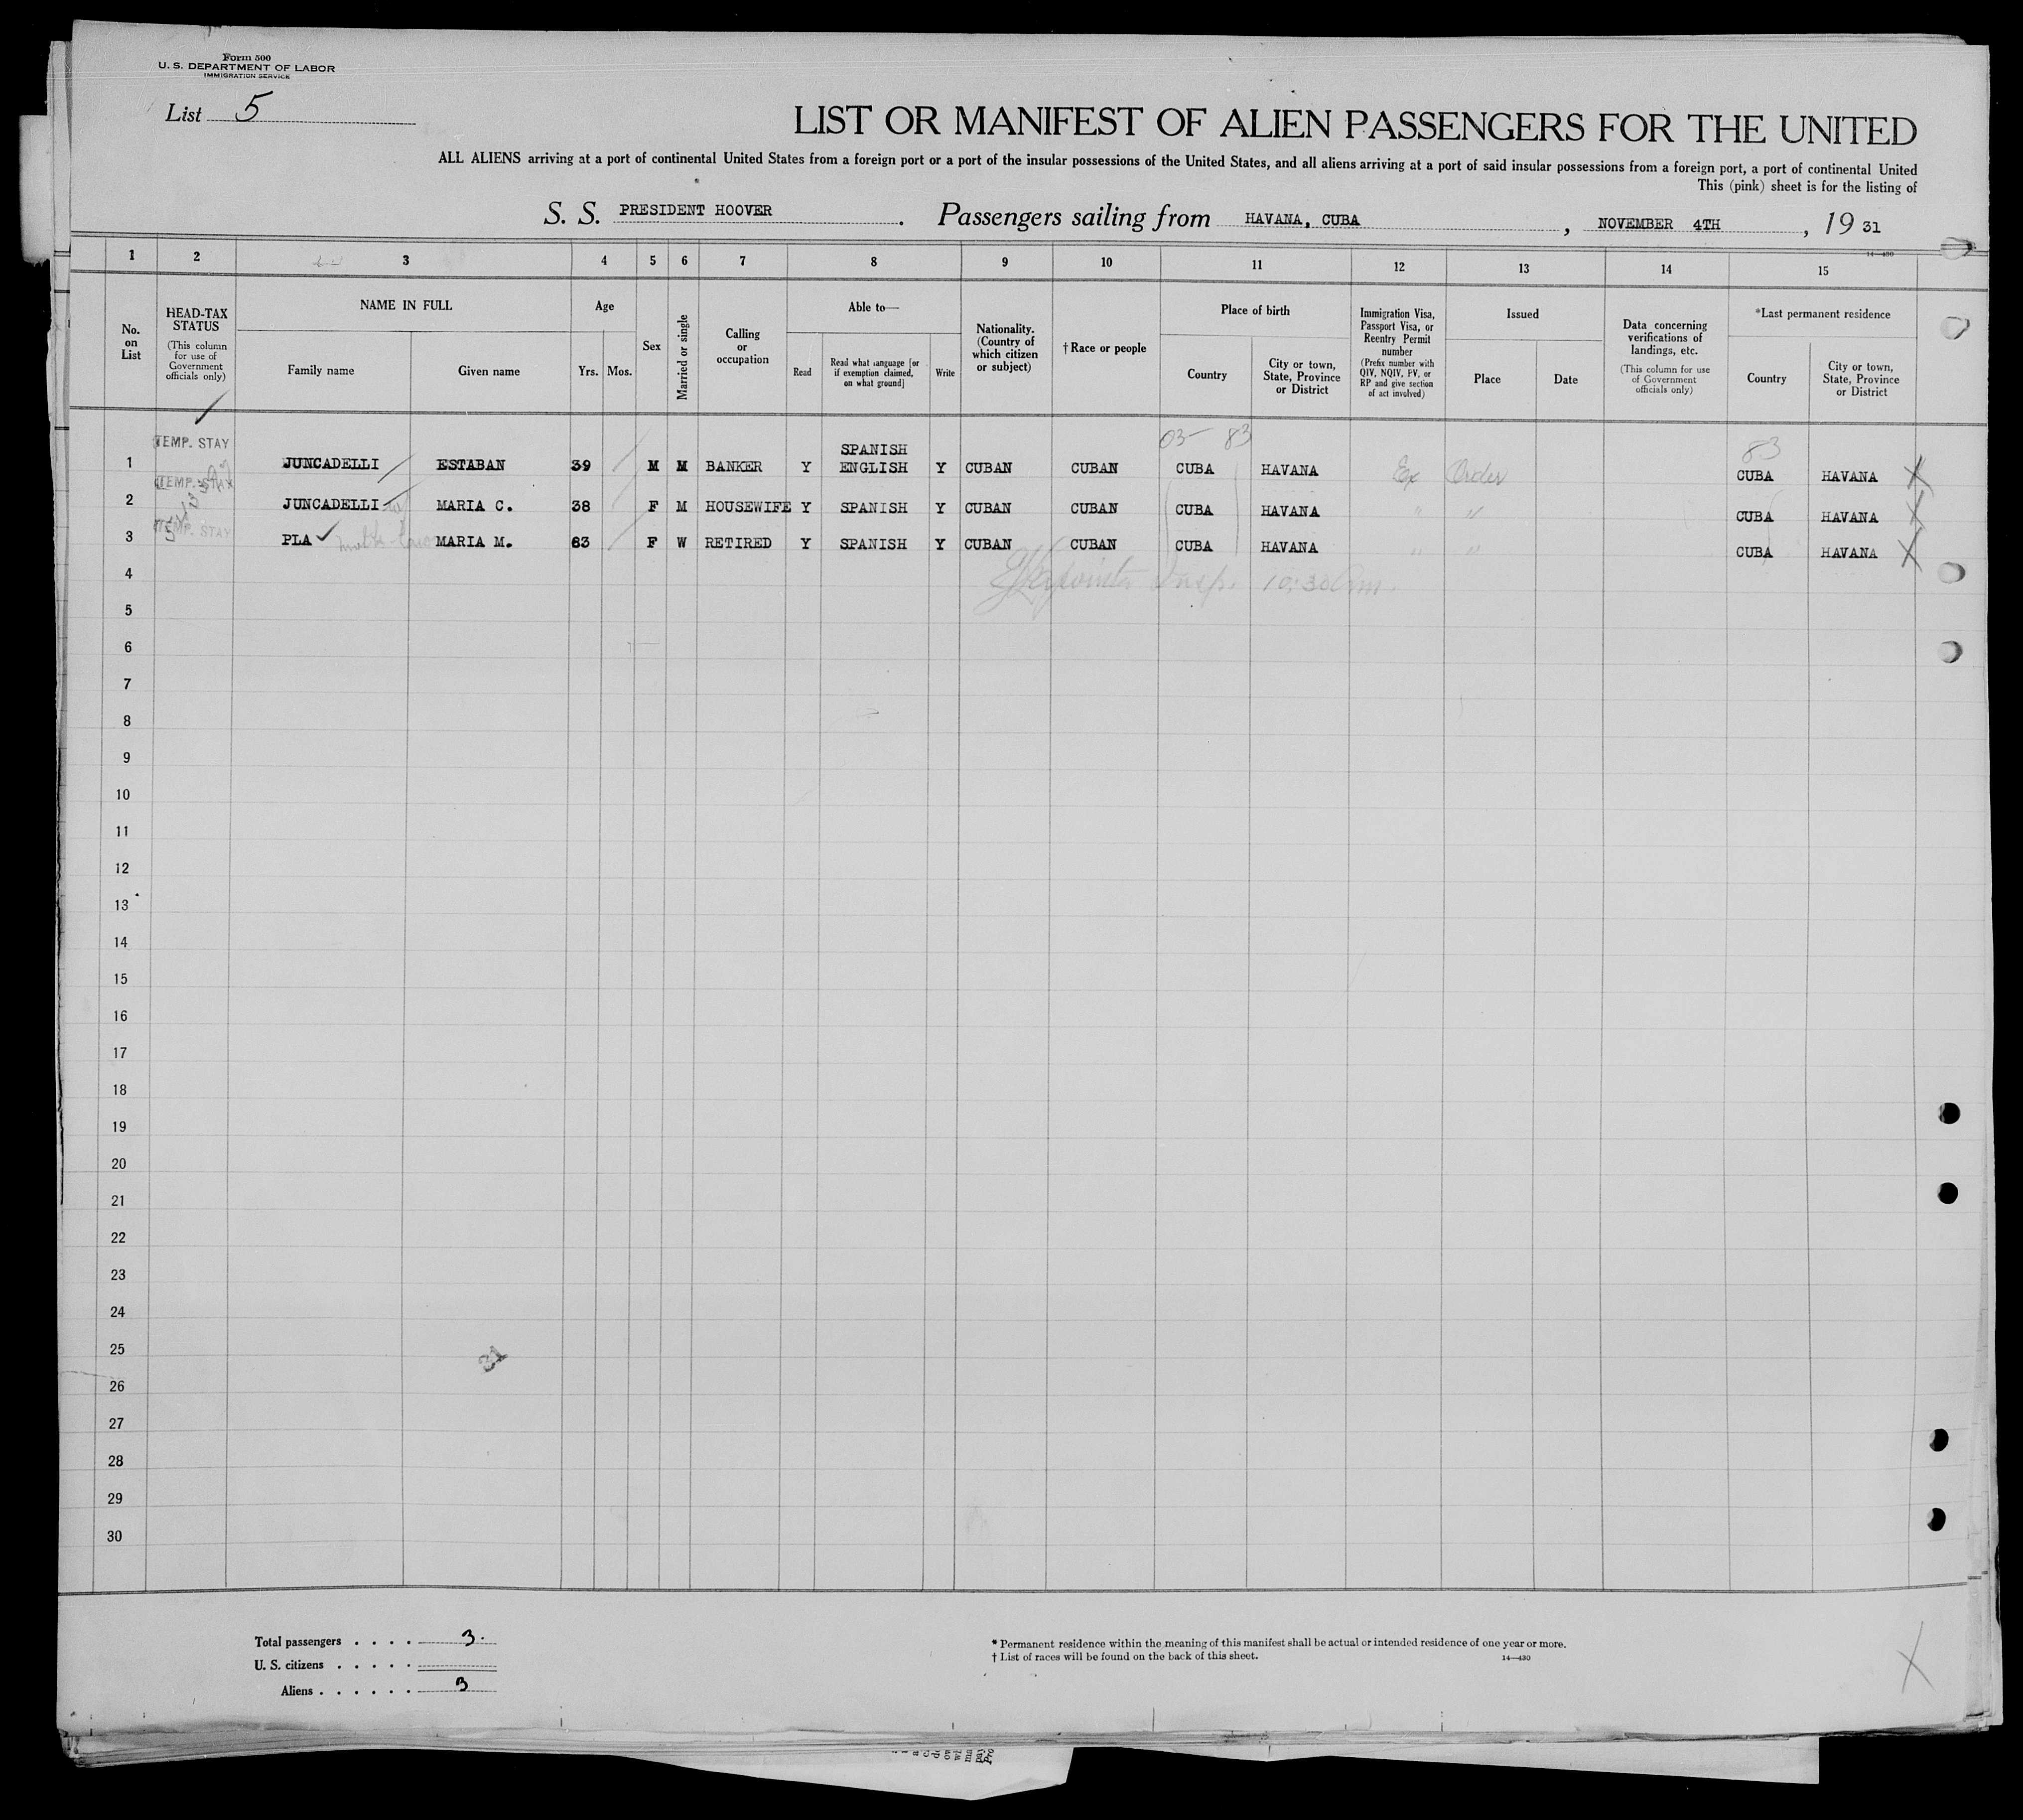 Form 500
U. S. DEPARTMENT OF LABOR
IMMIGRATION SERVICE
List 5
LIST OR MANIFEST OF ALIEN PASSENGERS FOR THE UNITED
ALL ALIENS arriving at a port of continental United States from a foreign port or a port of the insular possessions of the United States, and all aliens arriving at a port of said insular possessions from a foreign port, a port of continental United
This (pink) sheet is for the listing of
S. S. PRESIDENT HOOVER . Passengers sailing from HAVANA, CUBA , NOVEMBER 4TH , 19 31
14—430
1 2 3 4 5 6 7 8 9 10 11 12 13 14 15
No. on List
HEAD-TAX STATUS (This column for use of Government officials only)
NAME IN FULL
Family name
Given name
Age
Yrs. Mos.
Sex
Married or single
Calling or occupation
Able to—
Read
Read what language [or if exemption claimed, on what ground]
Write
Nationality. (Country of which citizen or subject)
† Race or people
Place of birth
Country
City or town, State, Province or District
Immigration Visa, Passport Visa, or Reentry Permit number (Prefix number with QIV, NQIV, PV, or RP and give section of act involved)
Issued
Place
Date
Data concerning verifications of landings, etc. (This column for use of Government officials only)
*Last permanent residence
Country
City or town, State, Province or District
03 83 83
1 TEMP. STAY JUNCADELLI ESTABAN 39 M M BANKER Y SPANISH ENGLISH Y CUBAN CUBAN CUBA HAVANA Ex Order CUBA HAVANA X
2 TEMP. STAY JUNCADELLI MARIA C. 38 F M HOUSEWIFE Y SPANISH Y CUBAN CUBAN CUBA HAVANA " " CUBA HAVANA X
3 TEMP. STAY PLA MARIA M. 63 F W RETIRED Y SPANISH Y CUBAN CUBAN CUBA HAVANA " " CUBA HAVANA X
4 Insp. 10:30 am.
5
6
7
8
9
10
11
12
13
14
15
16
17
18
19
20
21
22
23
24
25
31
26
27
28
29
30
Total passengers . . . . 3.
U. S. citizens . . . . .
Aliens . . . . . . 3
* Permanent residence within the meaning of this manifest shall be actual or intended residence of one year or more.
† List of races will be found on the back of this sheet.
14—430
X